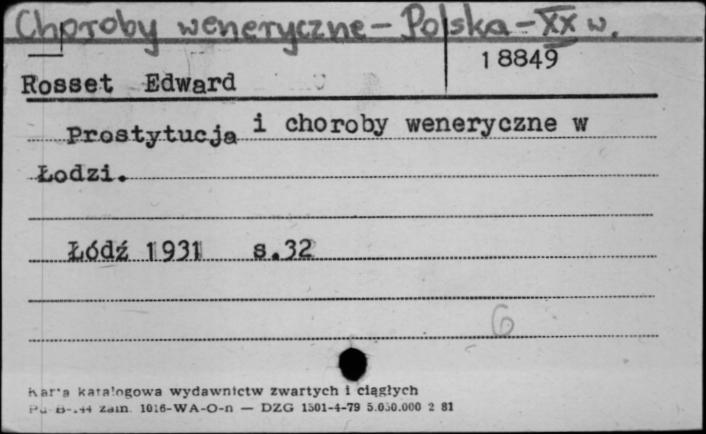 Choroby weneryczne - Polska - XX w.
18849
Rosset Edward
Prostytucja i choroby weneryczne w
Łodzi.
Łódź 1931 s.32
6
Karta katalogowa wydawnictw zwartych i ciągłych
Pu B-144 zam. 1016-WA-O-n — DZG 1501-4-79 5.050.000 2 81